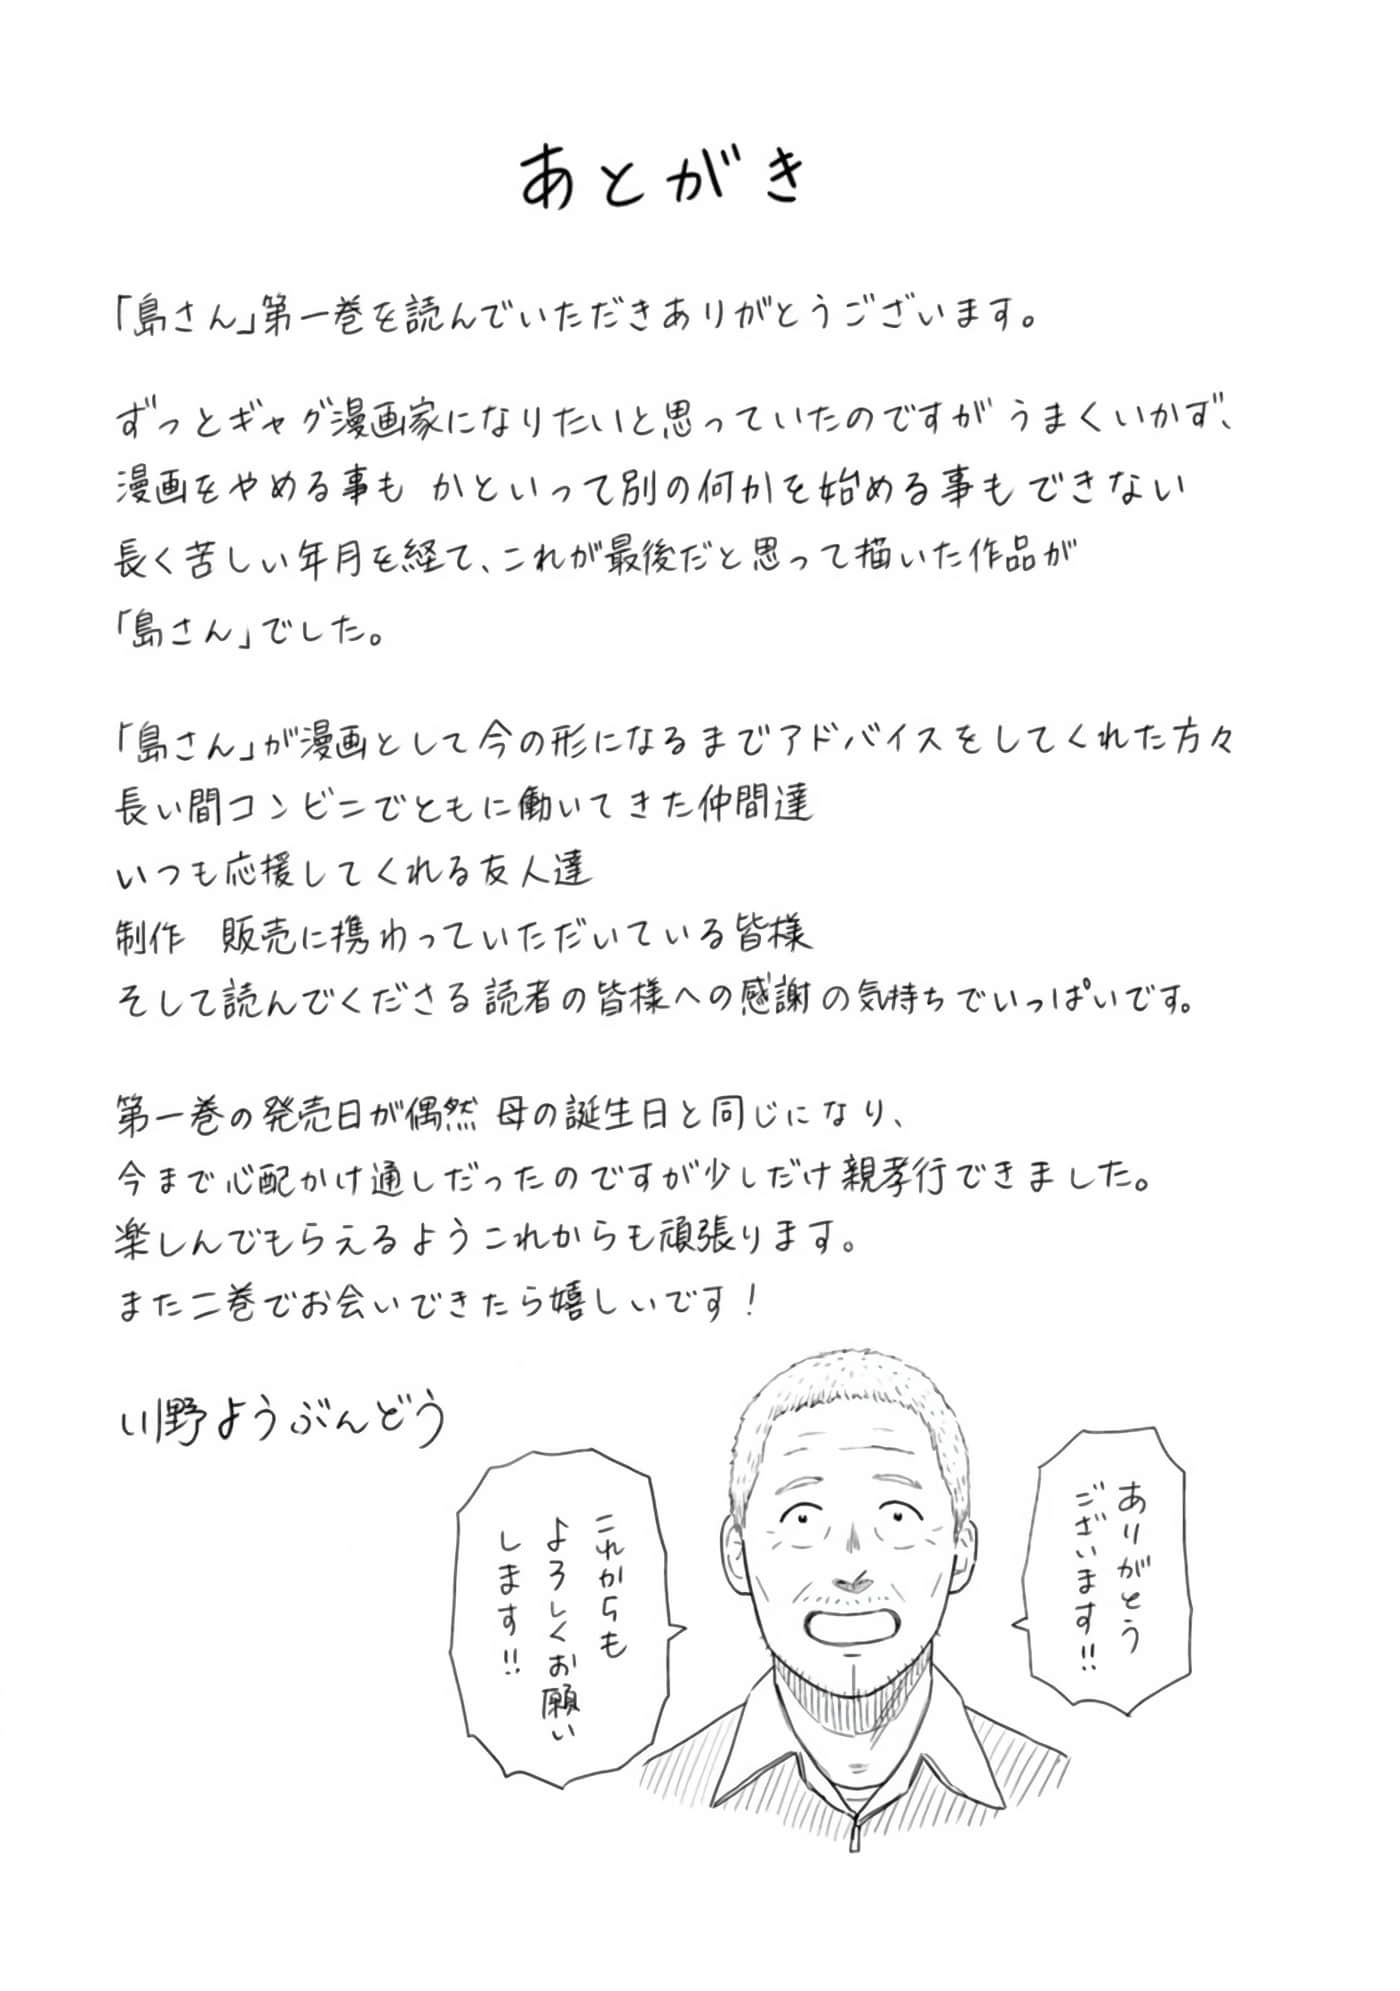 あとがき
「島さん」第一巻を読んでいただきありがとうございます。
ずっとギャグ漫画家になりたいと思っていたのですが うまくいかず、
漫画をやめる事も かといって別の何かを始める事も できない
長く苦しい年月を経て、これが最後だと思って描いた作品が
「島さん」でした。
「島さん」が漫画として今の形になるまでアドバイスをしてくれた方々
長い間コンビニでともに働いてきた仲間達
いつも応援してくれる友人達
制作　販売に携わっていただいている皆様
そして読んでくださる読者の皆様への感謝の気持ちでいっぱいです。
第一巻の発売日が偶然 母の誕生日と同じになり、
今まで心配かけ通しだったのですが少しだけ親孝行できました。
楽しんでもらえるようこれからも頑張ります。
また二巻でお会いできたら嬉しいです！
川野ようぶんどう
ありがとう
ございます!!
これからも
よろしくお願い
します!!